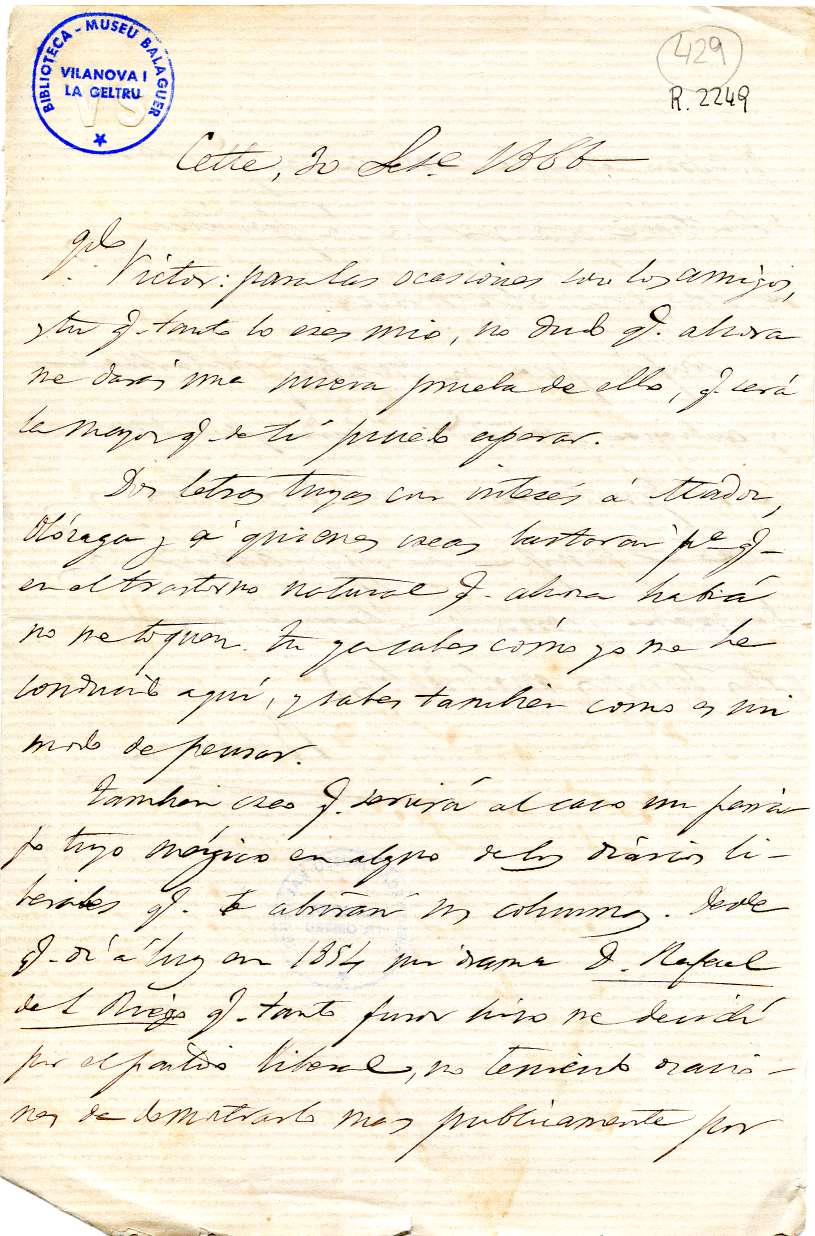 BIBLIOTECA - MUSEU BALAGUER
VILANOVA I
LA GELTRU
429
R. 2249
Cette, 30 Set.e 1868
q.do Victor: para las ocasiones son los amigos,
y tu q. tanto lo eres mio, no dudo q. ahora
me darás una nueva prueba de ello, q. será
la mayor q. de tí puedo esperar.
Dos letras tuyas con interés á Madoz,
Olózaga y á quienes creas bastarán p.a q.
en el trastorno natural q. ahora habrá
no me toquen. Tu ya sabes cómo yo me he
conducido aquí, y sabes tambien como es mi
modo de pensar.
Tambien creo q. serviria al caso un parra-
fo tuyo enérgico en alguno de los diarios li-
berales q. te abrirán sus columnas. Desde
q. dí á luz en 1854 mi drama D. Rafael
del Riego q. tanto furor hizo me decidí
por el partido liberal, no teniendo ocasio-
nes de demostrarlo mas publicamente por